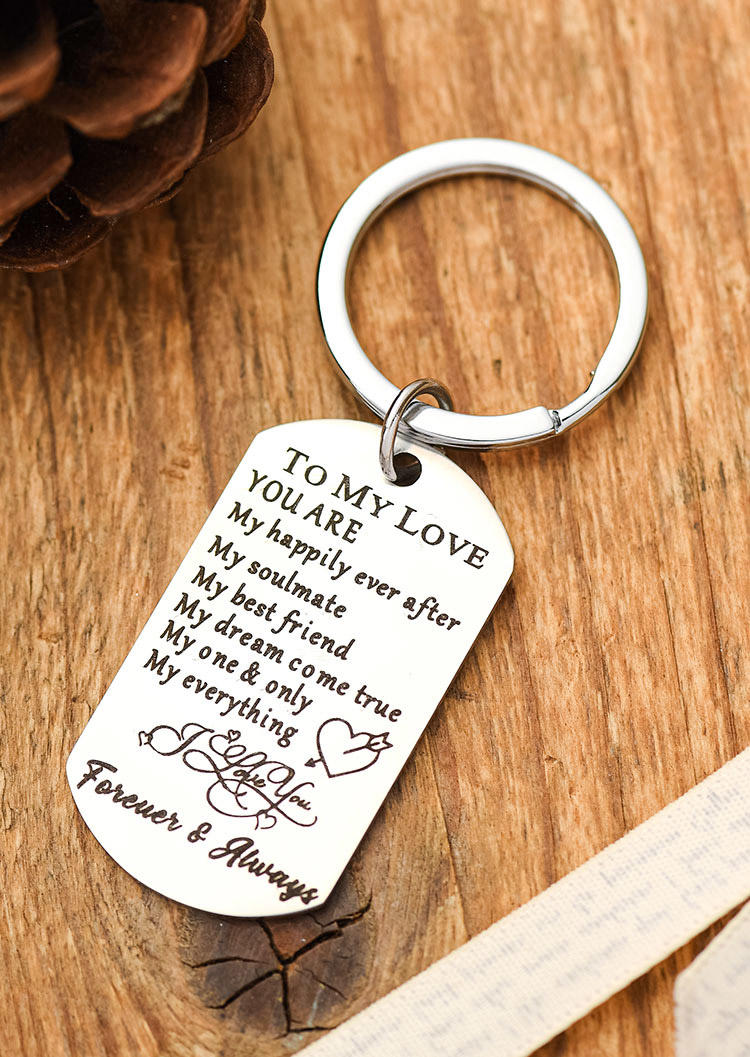 TO MY LOVE
YOU ARE
My happily ever after
My soulmate
My best friend
My dream come true
My one & only
My everything
I Love You
Forever & Always